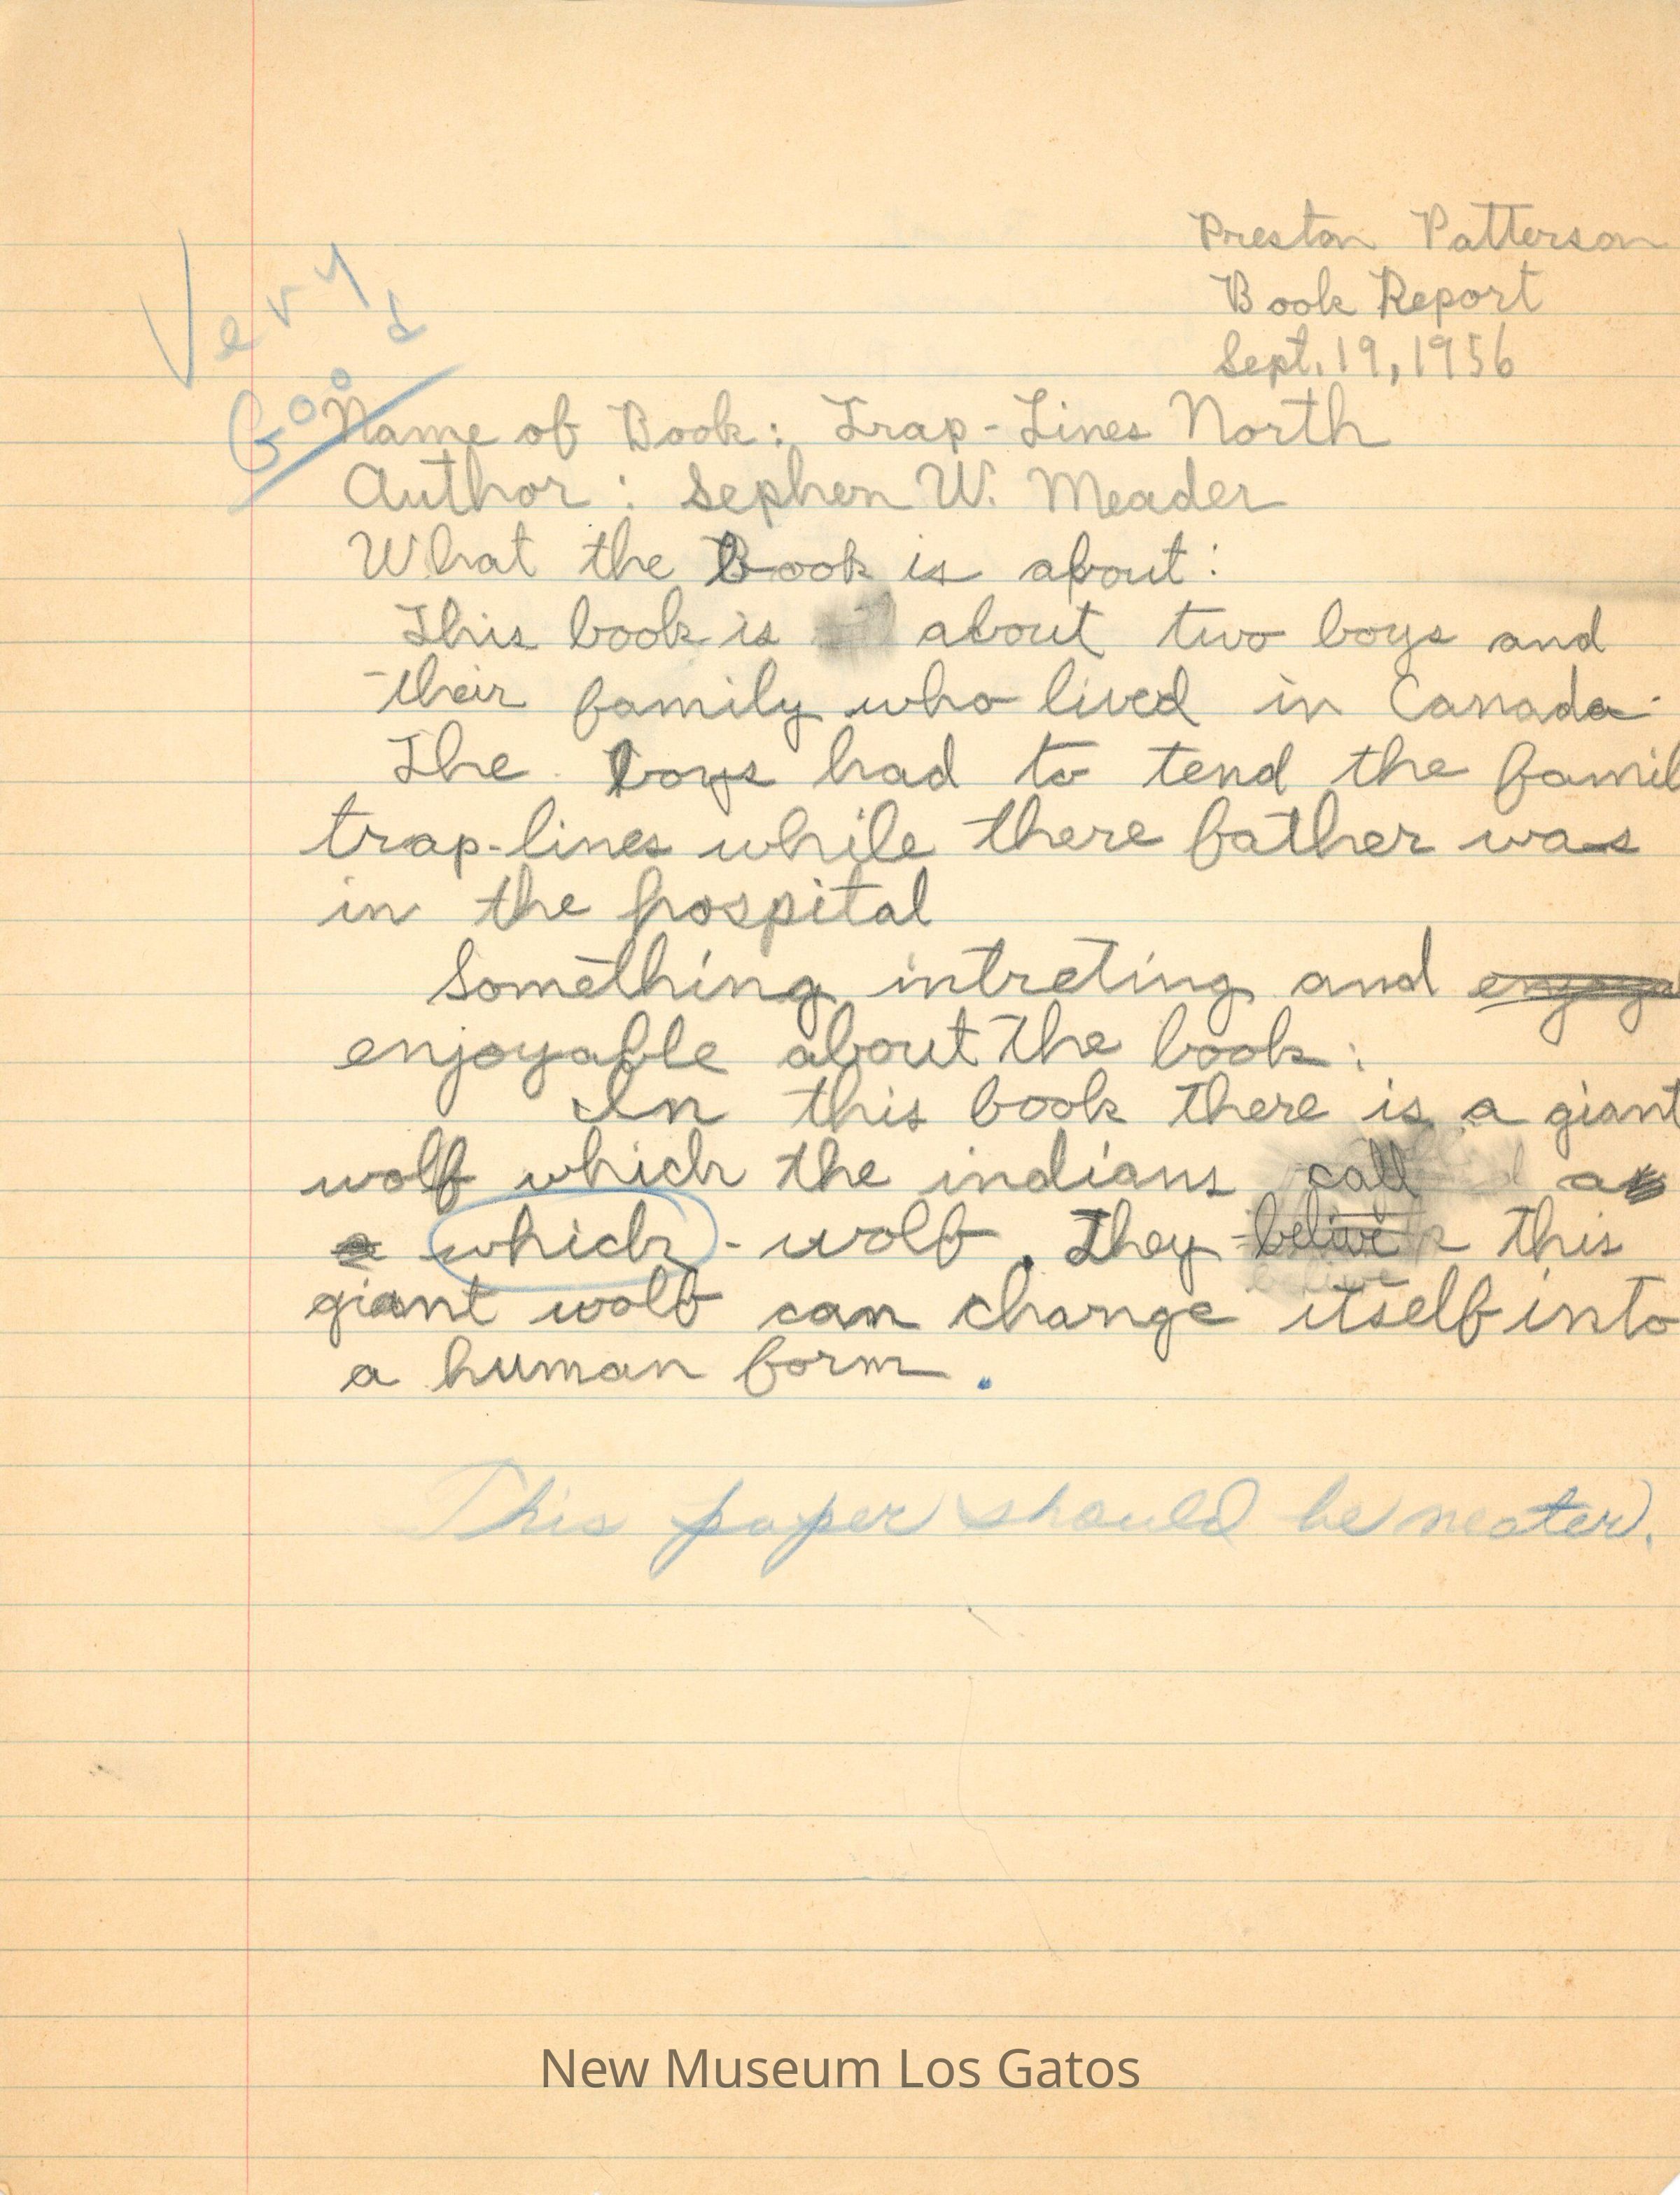 Preston Patterson
Book Report
Sept. 19, 1956
Very
Good
Name of Book: Trap-Lines North
Author: Sephen W. Meader
What the Book is about:
This book is about two boys and
their family who lived in Canada.
The boys had to tend the famil
trap-lines while there father was
in the hospital
Something intreting and
enjoyable about the book:
In this book there is a giant
wolf which the indians call a
which-wolf. They belive this
giant wolf can change itself into
a human form.
This paper should be neater.
New Museum Los Gatos